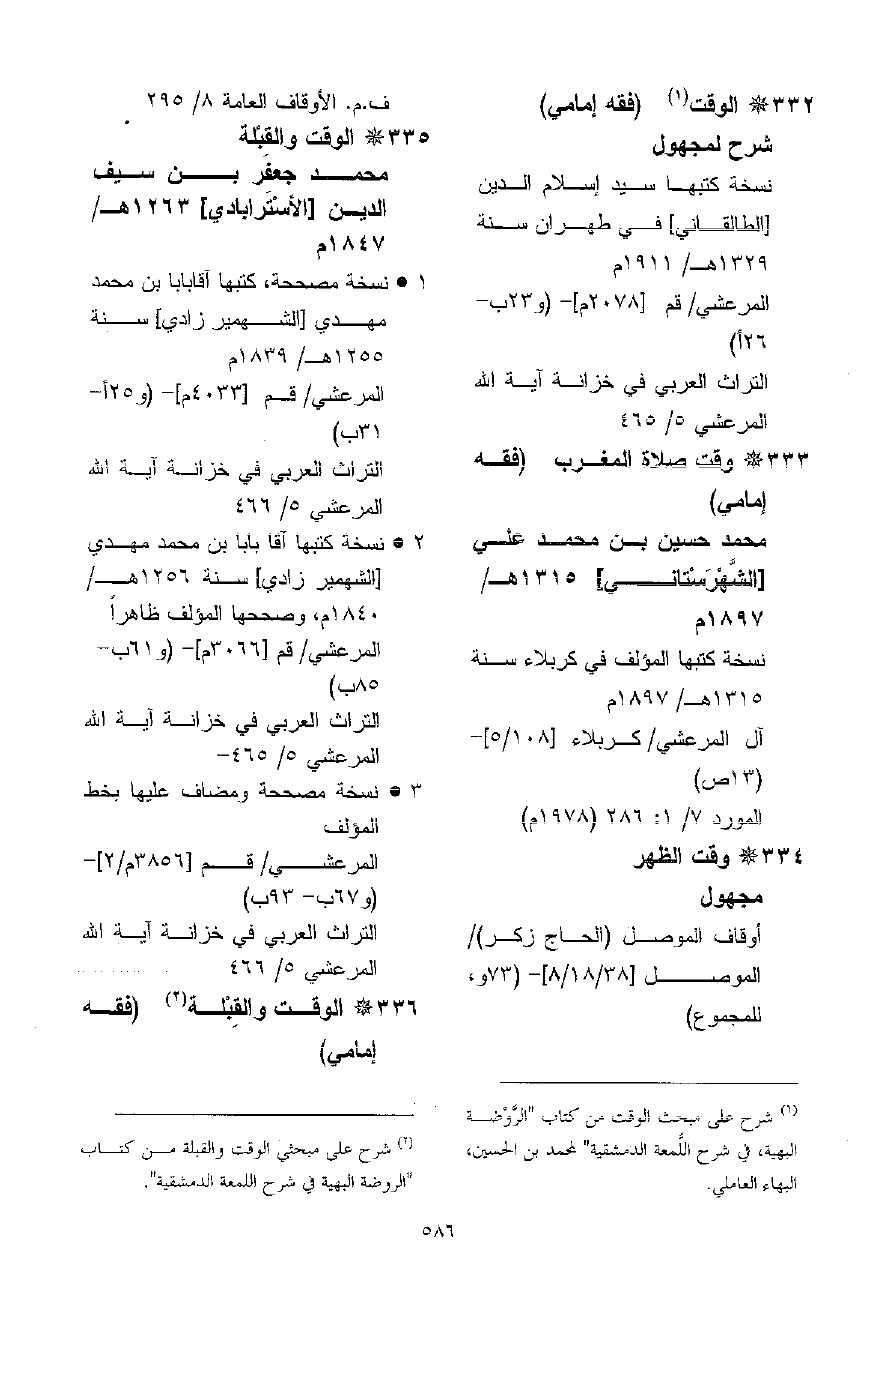 ٣٣٢ ❋ الوقت(١) (فقه إمامي)
شرح لمجهول
نسخة كتبها سيد إسلام الدين
[الطالقاني] في طهران سنة
١٣٢٩هـ/ ١٩١١م
المرعشي/ قم [٢٠٧٨م]- (و٢٣ب-
٢٦أ)
التراث العربي في خزانة آية الله
المرعشي ٥/ ٤٦٥
٣٣٣ ❋ وقت صلاة المغرب (فقه
إمامي)
محمد حسين بن محمد علي
[الشَّهْرَسْتاني] ١٣١٥هـ/
١٨٩٧م
نسخة كتبها المؤلف في كربلاء سنة
١٣١٥هـ/ ١٨٩٧م
آل المرعشي/ كربلاء [٥/١٠٨]-
(١٣ص)
المورد ٧/ ١: ٢٨٦ (١٩٧٨م)
٣٣٤ ❋ وقت الظهر
مجهول
أوقاف الموصل (الحاج زكر)/
الموصل [٨/١٨/٣٨]- (٧٣و،
للمجموع)
(١) شرح على مبحث الوقت من كتاب "الرَّوْضة
البهية، في شرح اللُّمعة الدمشقية" لمحمد بن الحسين،
البهاء العاملي.
ف.م. الأوقاف العامة ٨/ ٢٩٥
٣٣٥ ❋ الوقت والقِبْلة
محمد جعفر بن سيف
الدين [الأسْتَرابادي] ١٢٦٣هـ/
١٨٤٧م
١ ● نسخة مصححة، كتبها آقابابا بن محمد
مهدي [الشهمير زادي] سنة
١٢٥٥هـ/ ١٨٣٩م
المرعشي/ قم [٤٠٣٣م]- (و٢٥أ-
٣١ب)
التراث العربي في خزانة آية الله
المرعشي ٥/ ٤٦٦
٢ ● نسخة كتبها آقا بابا بن محمد مهدي
[الشهمير زادي] سنة ١٢٥٦هـ/
١٨٤٠م، وصححها المؤلف ظاهراً
المرعشي/ قم [٣٠٦٦م]- (و٦١ب-
٨٥ب)
التراث العربي في خزانة آية الله
المرعشي ٥/ ٤٦٥-
٣ ● نسخة مصححة ومضاف عليها بخط
المؤلف
المرعشي/ قم [٣٨٥٦م/٢]-
(و٦٧ب- ٩٣ب)
التراث العربي في خزانة آية الله
المرعشي ٥/ ٤٦٦
٣٣٦ ❋ الوقت والقِبْلة(٢) (فقه
إمامي)
(٢) شرح على مبحثي الوقت والقبلة من كتاب
"الروضة البهية في شرح اللمعة الدمشقية".
٥٨٦